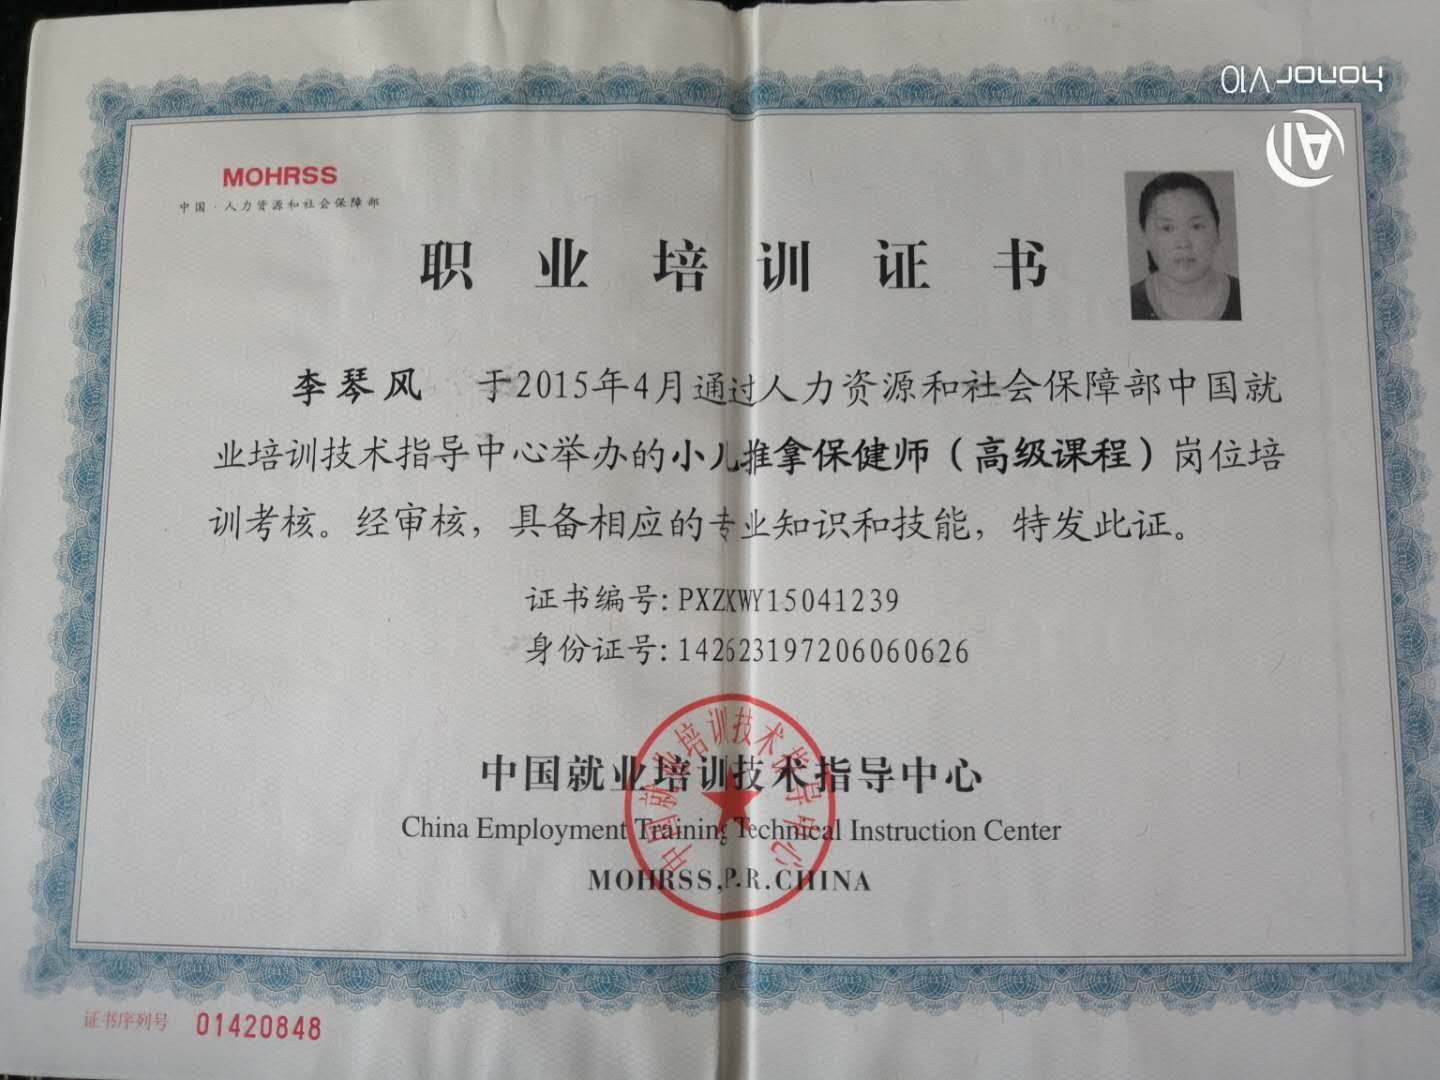 honor V10
AI
MOHRSS
中国·人力资源和社会保障部
职业培训证书
李琴风 于2015年4月通过人力资源和社会保障部中国就
业培训技术指导中心举办的小儿推拿保健师（高级课程）岗位培
训考核。经审核，具备相应的专业知识和技能，特发此证。
证书编号：PXZXWY15041239
身份证号：142623197206060626
中国就业培训技术指导中心
中国就业培训技术指导中心
China Employment Training Technical Instruction Center
MOHRSS.P.R.CHINA
证书序列号 01420848